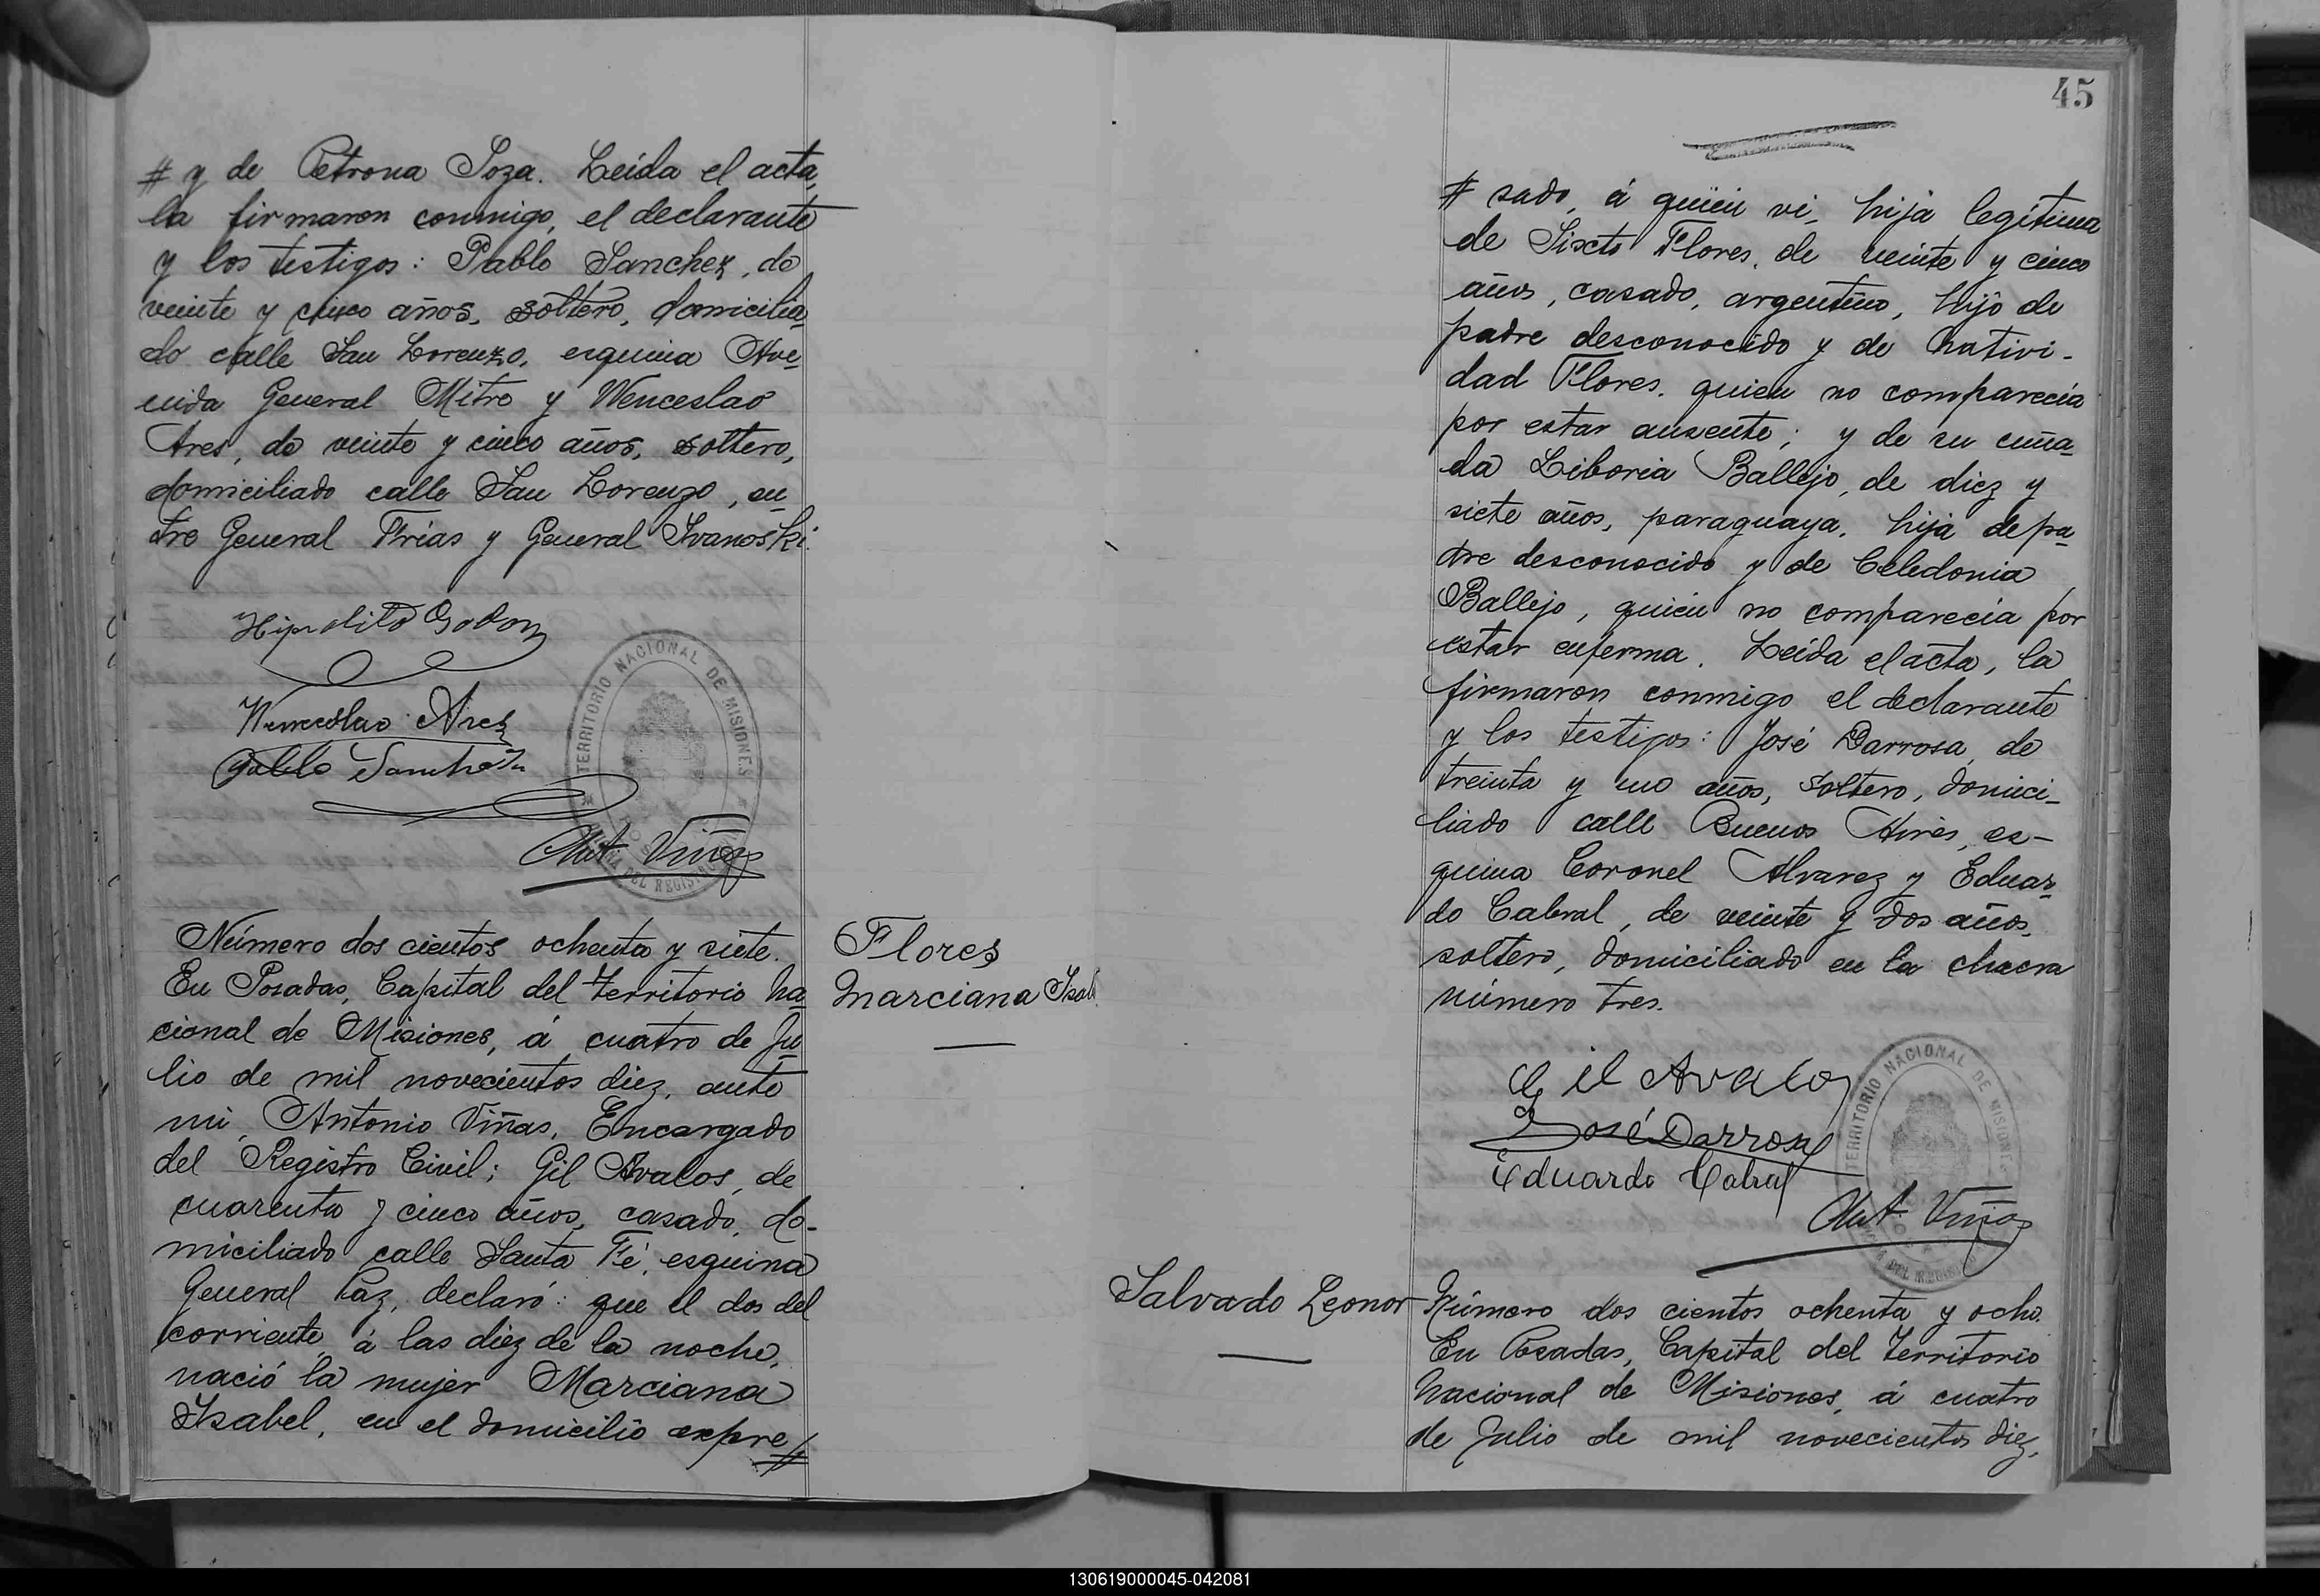 # y de Petrona Soza. Leída el acta,
la firmaron conmigo, el declarante
y los testigos: Pablo Sanchez, de
veinte y cinco años, soltero, domicilia-
do calle San Lorenzo, esquina Ave-
nida General Mitre y Wenceslao
Ares, de veinte y cinco años, soltero,
domiciliado calle San Lorenzo, en-
tre General Frías y General Ivanoski.
Hipolito Godoy
Wenceslao Ares
Pablo Sanchez
TERRITORIO NACIONAL DE MISIONES
DEL REGISTRO
Ant. Viñas
Número dos cientos ochenta y siete.
En Posadas, Capital del Territorio Na-
cional de Misiones, á cuatro de Ju-
lio de mil novecientos diez, ante
mi, Antonio Viñas, Encargado
del Registro Civil; Gil Avalos, de
cuarenta y cinco años, casado, do-
miciliado calle Santa Fé, esquina
General Paz, declaró: que el dos del
corriente, á las diez de la noche,
nació la mujer Marciana
Isabel, en el domicilio expre#
Flores
Marciana Isab.
45
# sado, á quien vi, hija legítima
de Sixto Flores, de veinte y cinco
años, casado, argentino, hijo de
padre desconocido y de Nativi-
dad Flores, quien no comparecía
por estar ausente; y de su cuña-
da Liboria Ballejo, de diez y
siete años, paraguaya, hija de pa-
dre desconocido y de Celedonia
Ballejo, quien no comparecía por
estar enferma. Leída el acta, la
firmaron conmigo el declarante
y los testigos: José Darrosa, de
treinta y uno años, soltero, domici-
liado calle Buenos Aires, es-
quina Coronel Alvarez y Eduar-
do Cabral, de veinte y dos años,
soltero, domiciliado en la chacra
número tres.
Gil Avalos
José Darrosa
Eduardo Cabral
TERRITORIO NACIONAL DE MISIONES
Ant. Viñas
Salvado Leonor
Número dos cientos ochenta y ocho.
En Posadas, Capital del Territorio
Nacional de Misiones, á cuatro
de Julio de mil novecientos diez,
130619000045-042081